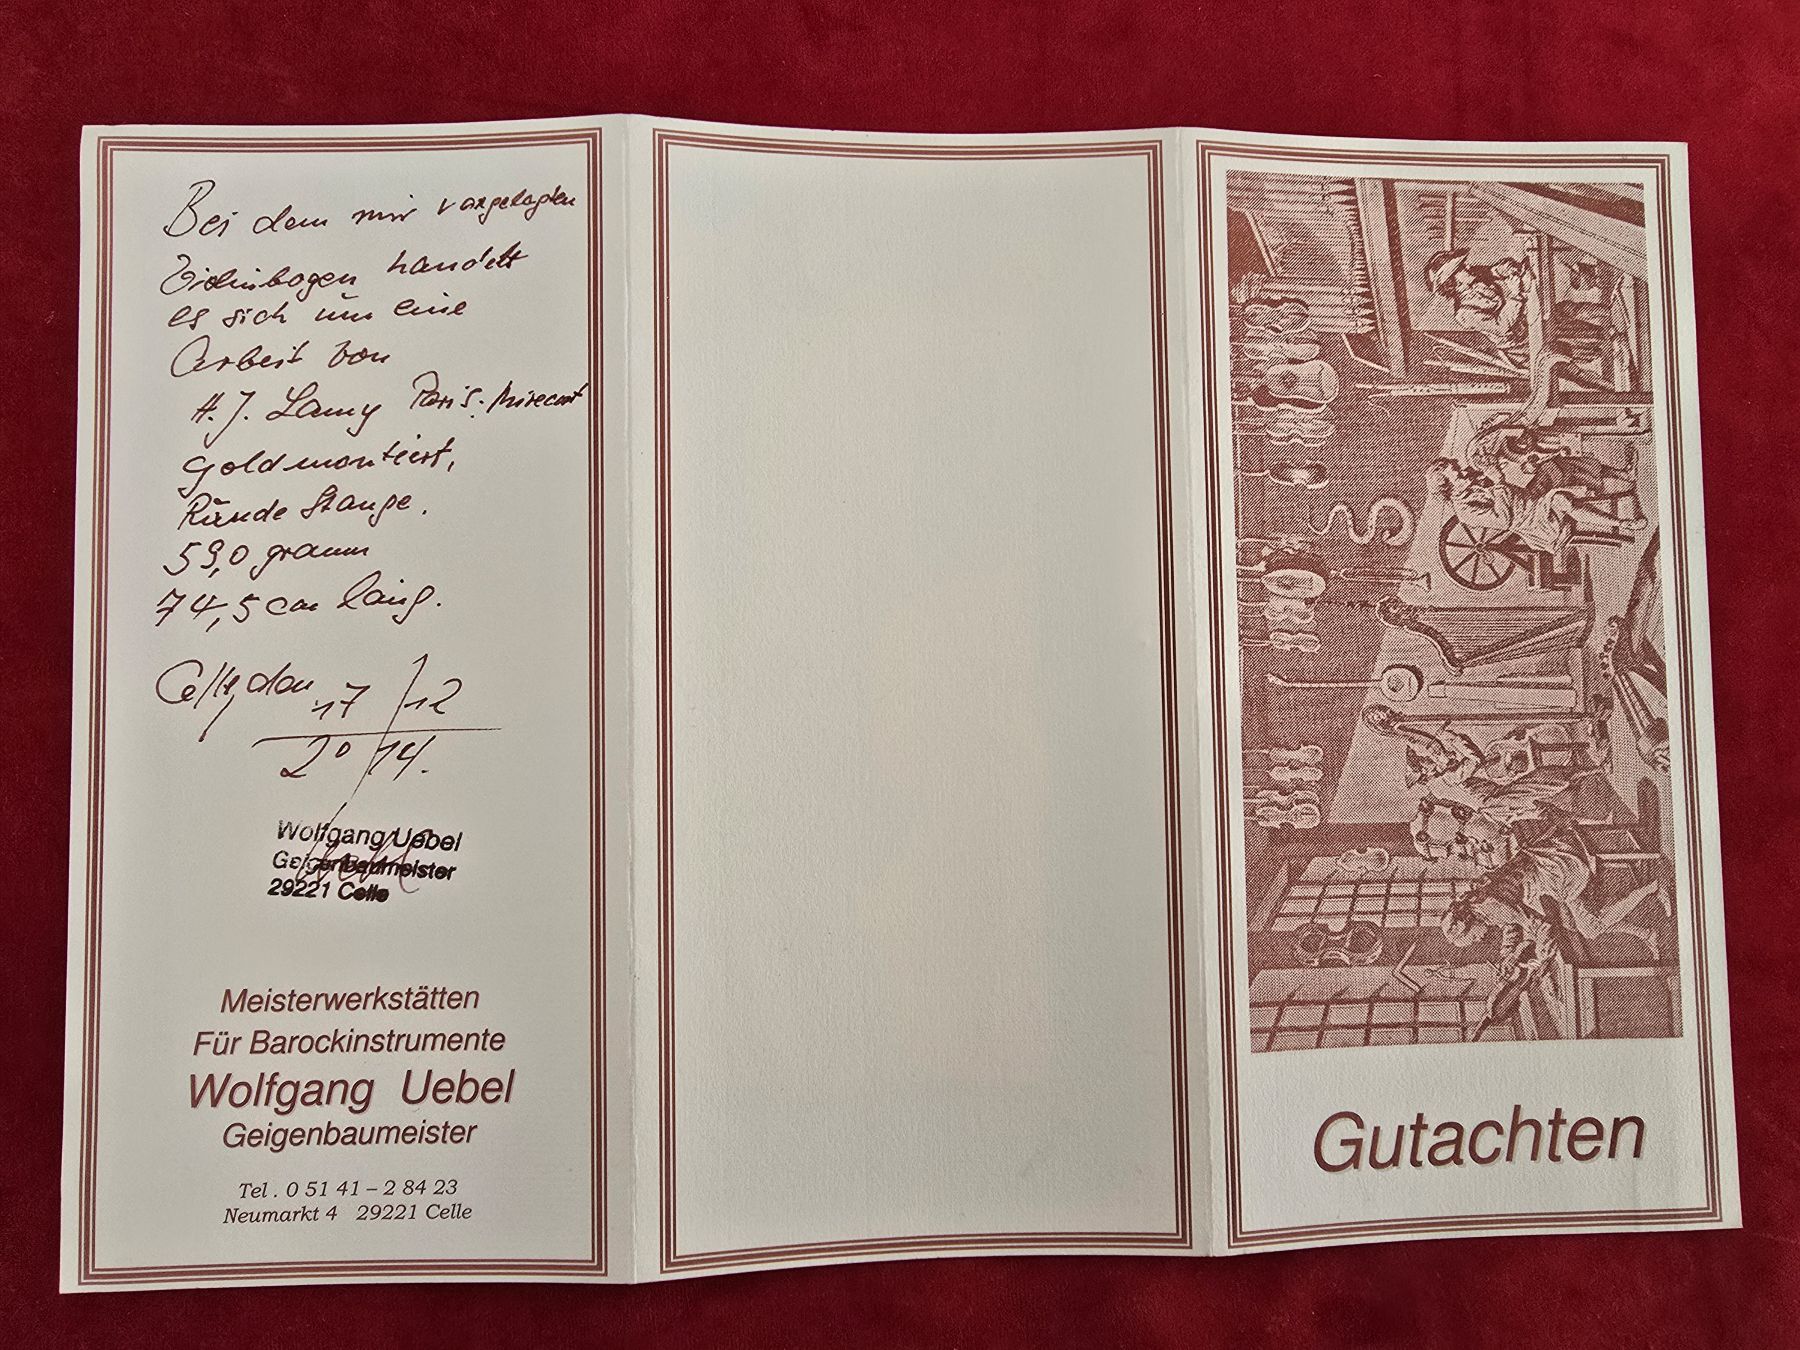 Bei dem mir vorgelegten
Violinbogen handelt
es sich um eine
Arbeit von
H. J. Lamy Paris. Mirecourt
Goldmontiert,
Runde Stange.
59,0 gramm
74,5 cm lang.
Celle, den 17/12
2014.
Wolfgang Uebel
Geigenbaumeister
29221 Celle
Meisterwerkstätten
Für Barockinstrumente
Wolfgang Uebel
Geigenbaumeister
Tel . 0 51 41 – 2 84 23
Neumarkt 4 29221 Celle
Gutachten